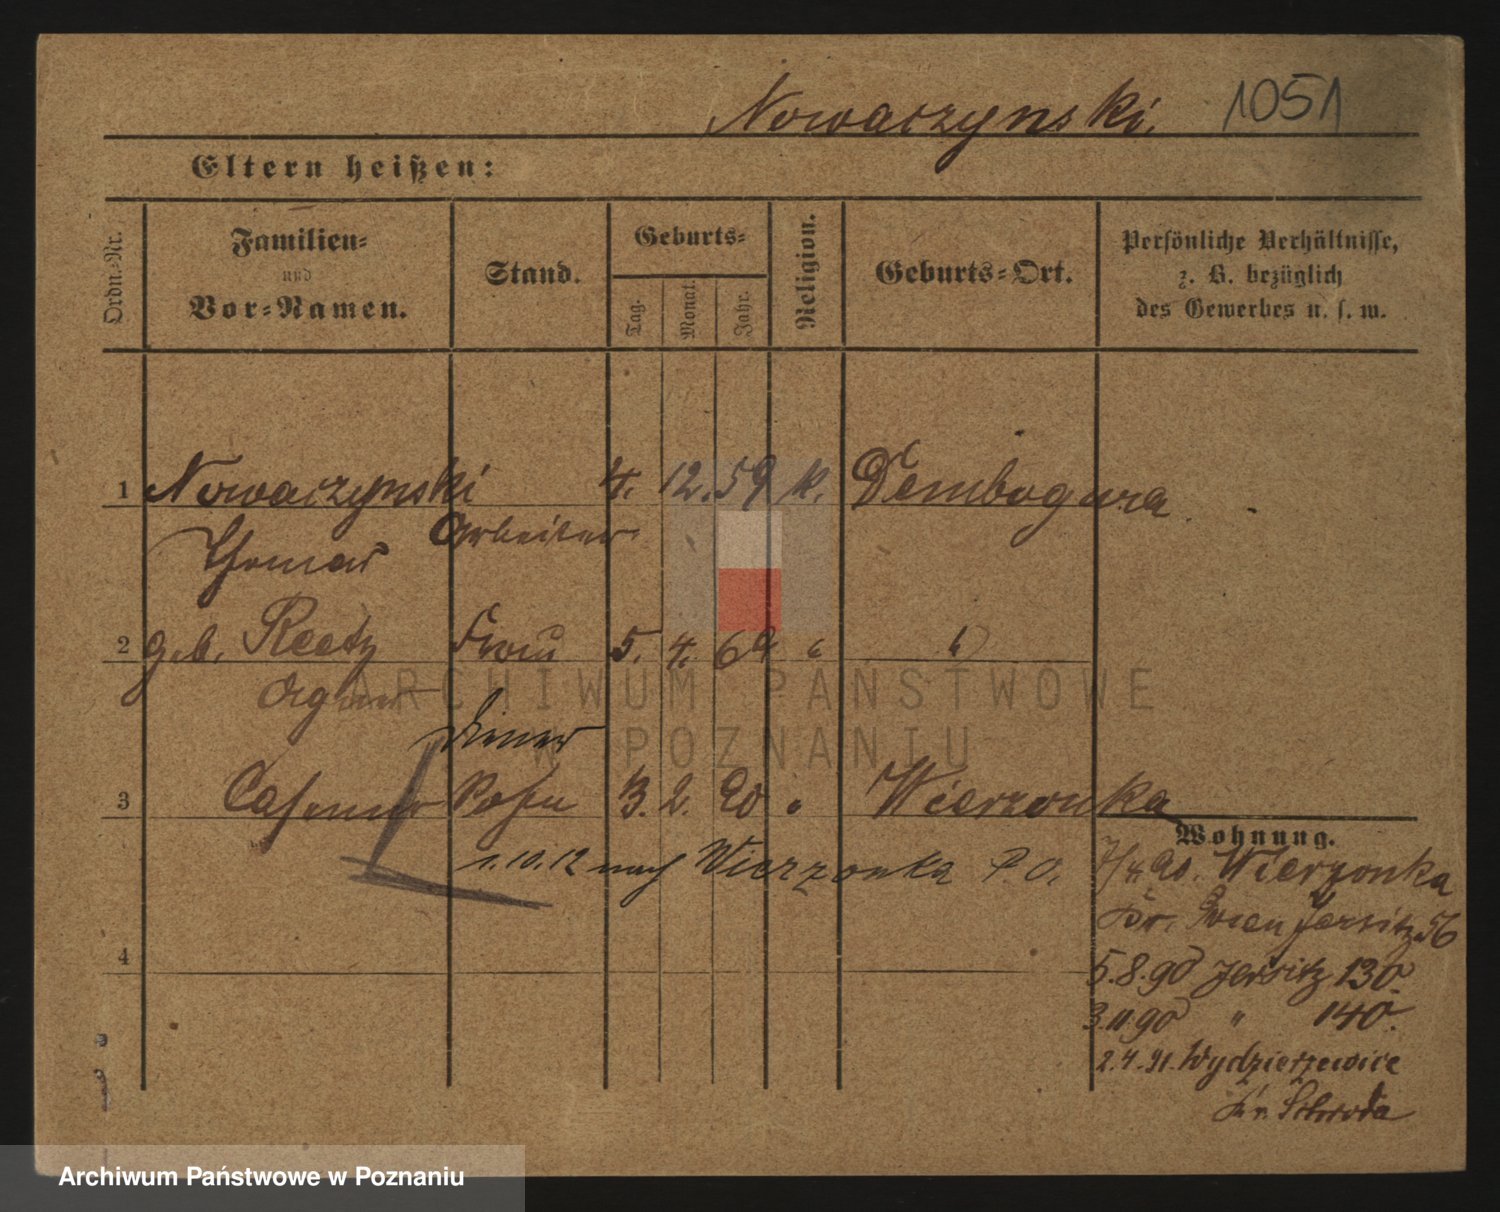 Nowaczynski. 1051
Eltern heißen:
Ordn.-Nr.
Familien-
und
Vor-Namen.
Stand.
Geburts-
Tag.
Monat.
Jahr.
Religion.
Geburts-Ort.
Persönliche Verhältnisse,
z. B. bezüglich
des Gewerbes u. s. w.
1 Nowaczynski 4. 12. 59 k. Dembogura
Thomas Arbeiter
2 geb. Reetz Frau 5. 4. 69 " "
Agnes
ARCHIWUM PAŃSTWOWE
W POZNANIU
Diener
3 Casimir Sohn 3. 2. 90 " Wierzonka
Wohnung.
1.10.12 nach Wierzonka P. O.
7/4 90. Wierzonka
Kr. Posen Jersitz 56
4
5.8.90 Jersitz 130.
3.11.90 " 140.
2.4.91. Wydzierzewice
Kr. Schroda
Archiwum Państwowe w Poznaniu